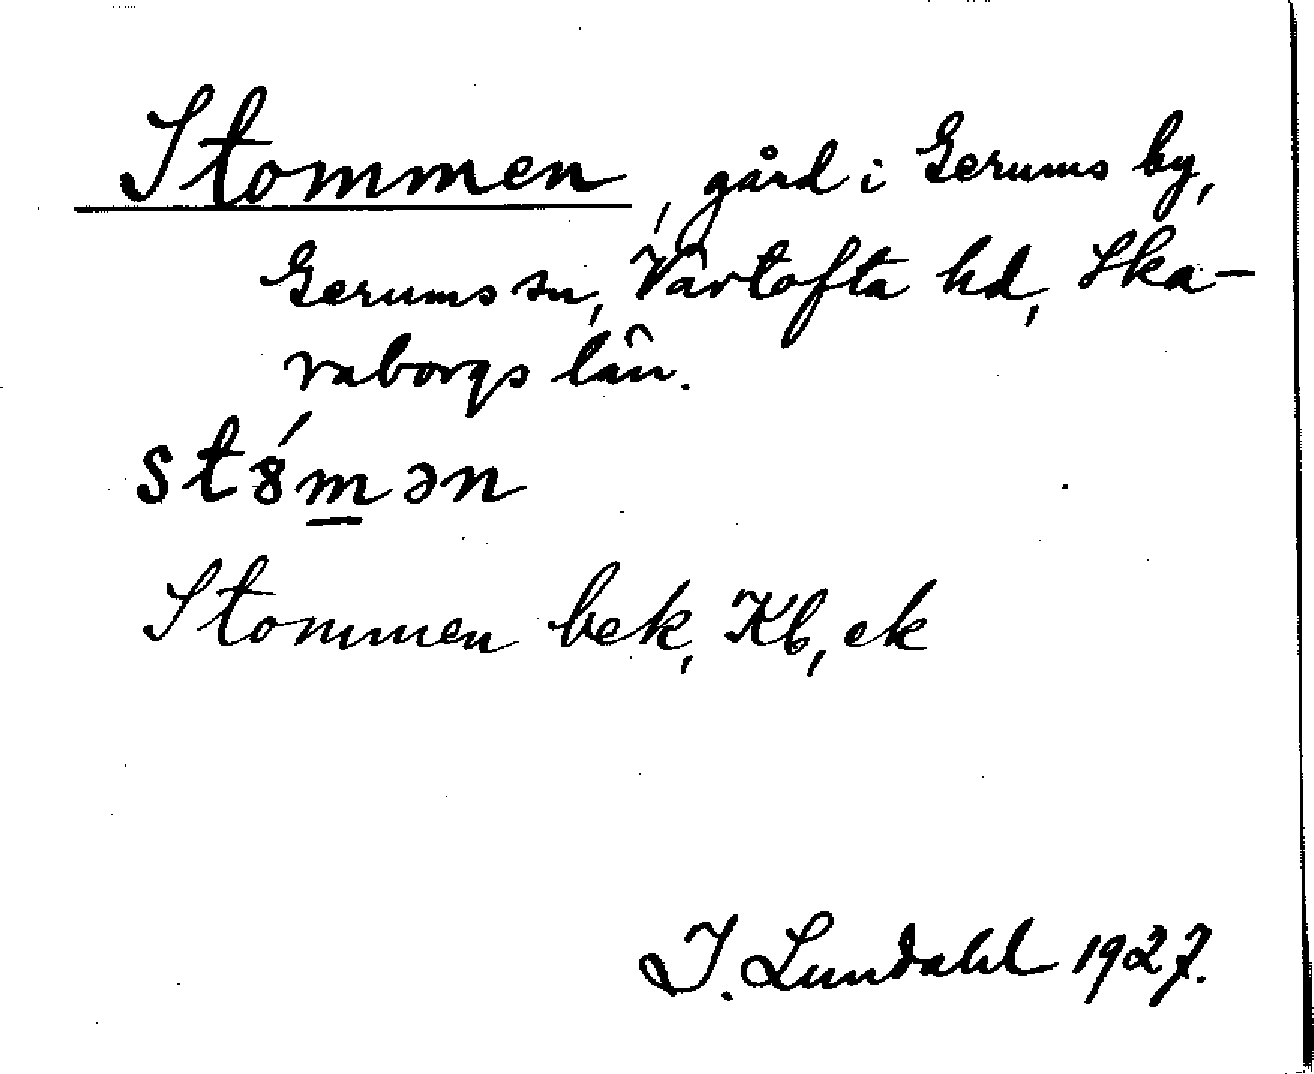 Stommen, gård i Gerums by,
Gerums sn, Vartofta hd, Ska-
raborgs län.
st8́m̲ən
Stommen bek, Kb, ek
I. Lundahl 1927.